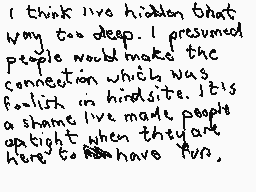 I think I've hidden that
way too deep. I presumed
people would make the
connection which was
foolish in hindsite. It's
a shame I've made people
uptight when they are
here to have fun.